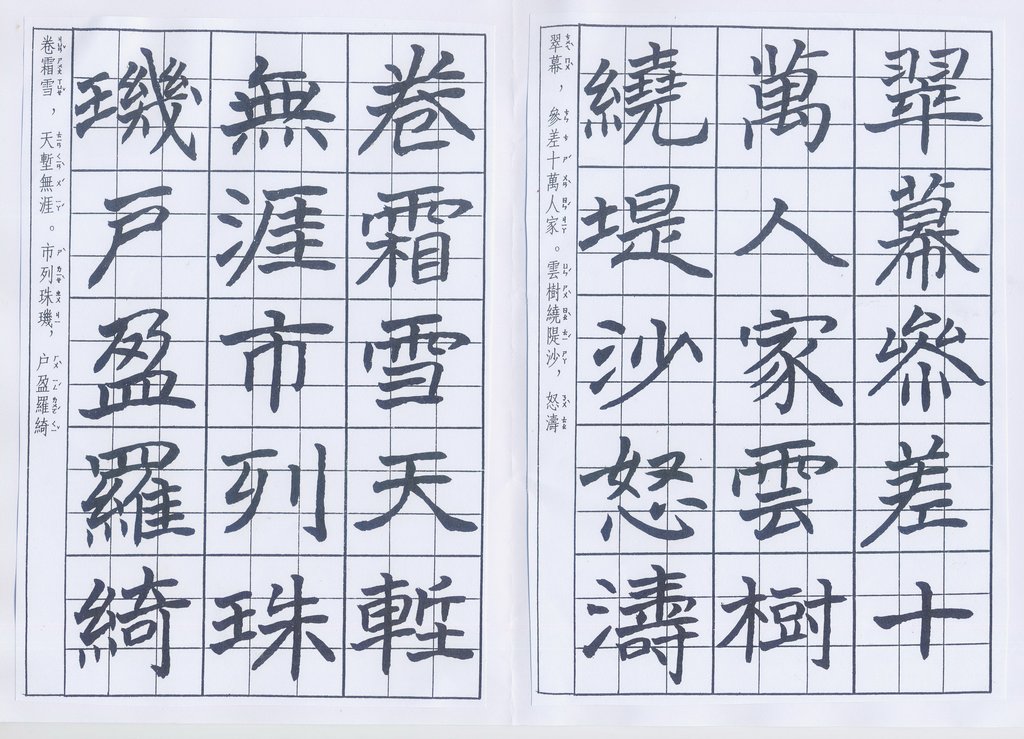 翠幕參差十
萬人家雲樹
繞堤沙怒濤
翠幕，參差十萬人家。雲樹繞隄沙，怒濤
卷霜雪天塹
無涯市列珠
璣戶盈羅綺
卷霜雪，天塹無涯。市列珠璣，戶盈羅綺